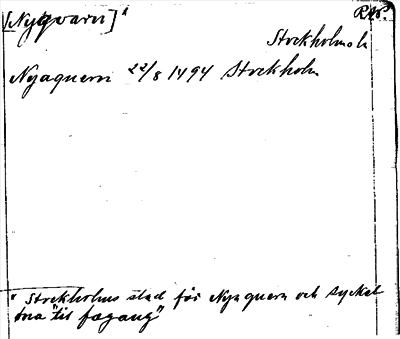 [Nykvarn] x
RAp.
Stockholms l.
Nyaquern 22/8 1494 Stockholm
x Stockholms stad får Nya quern och Syckel
bua "til fægang"